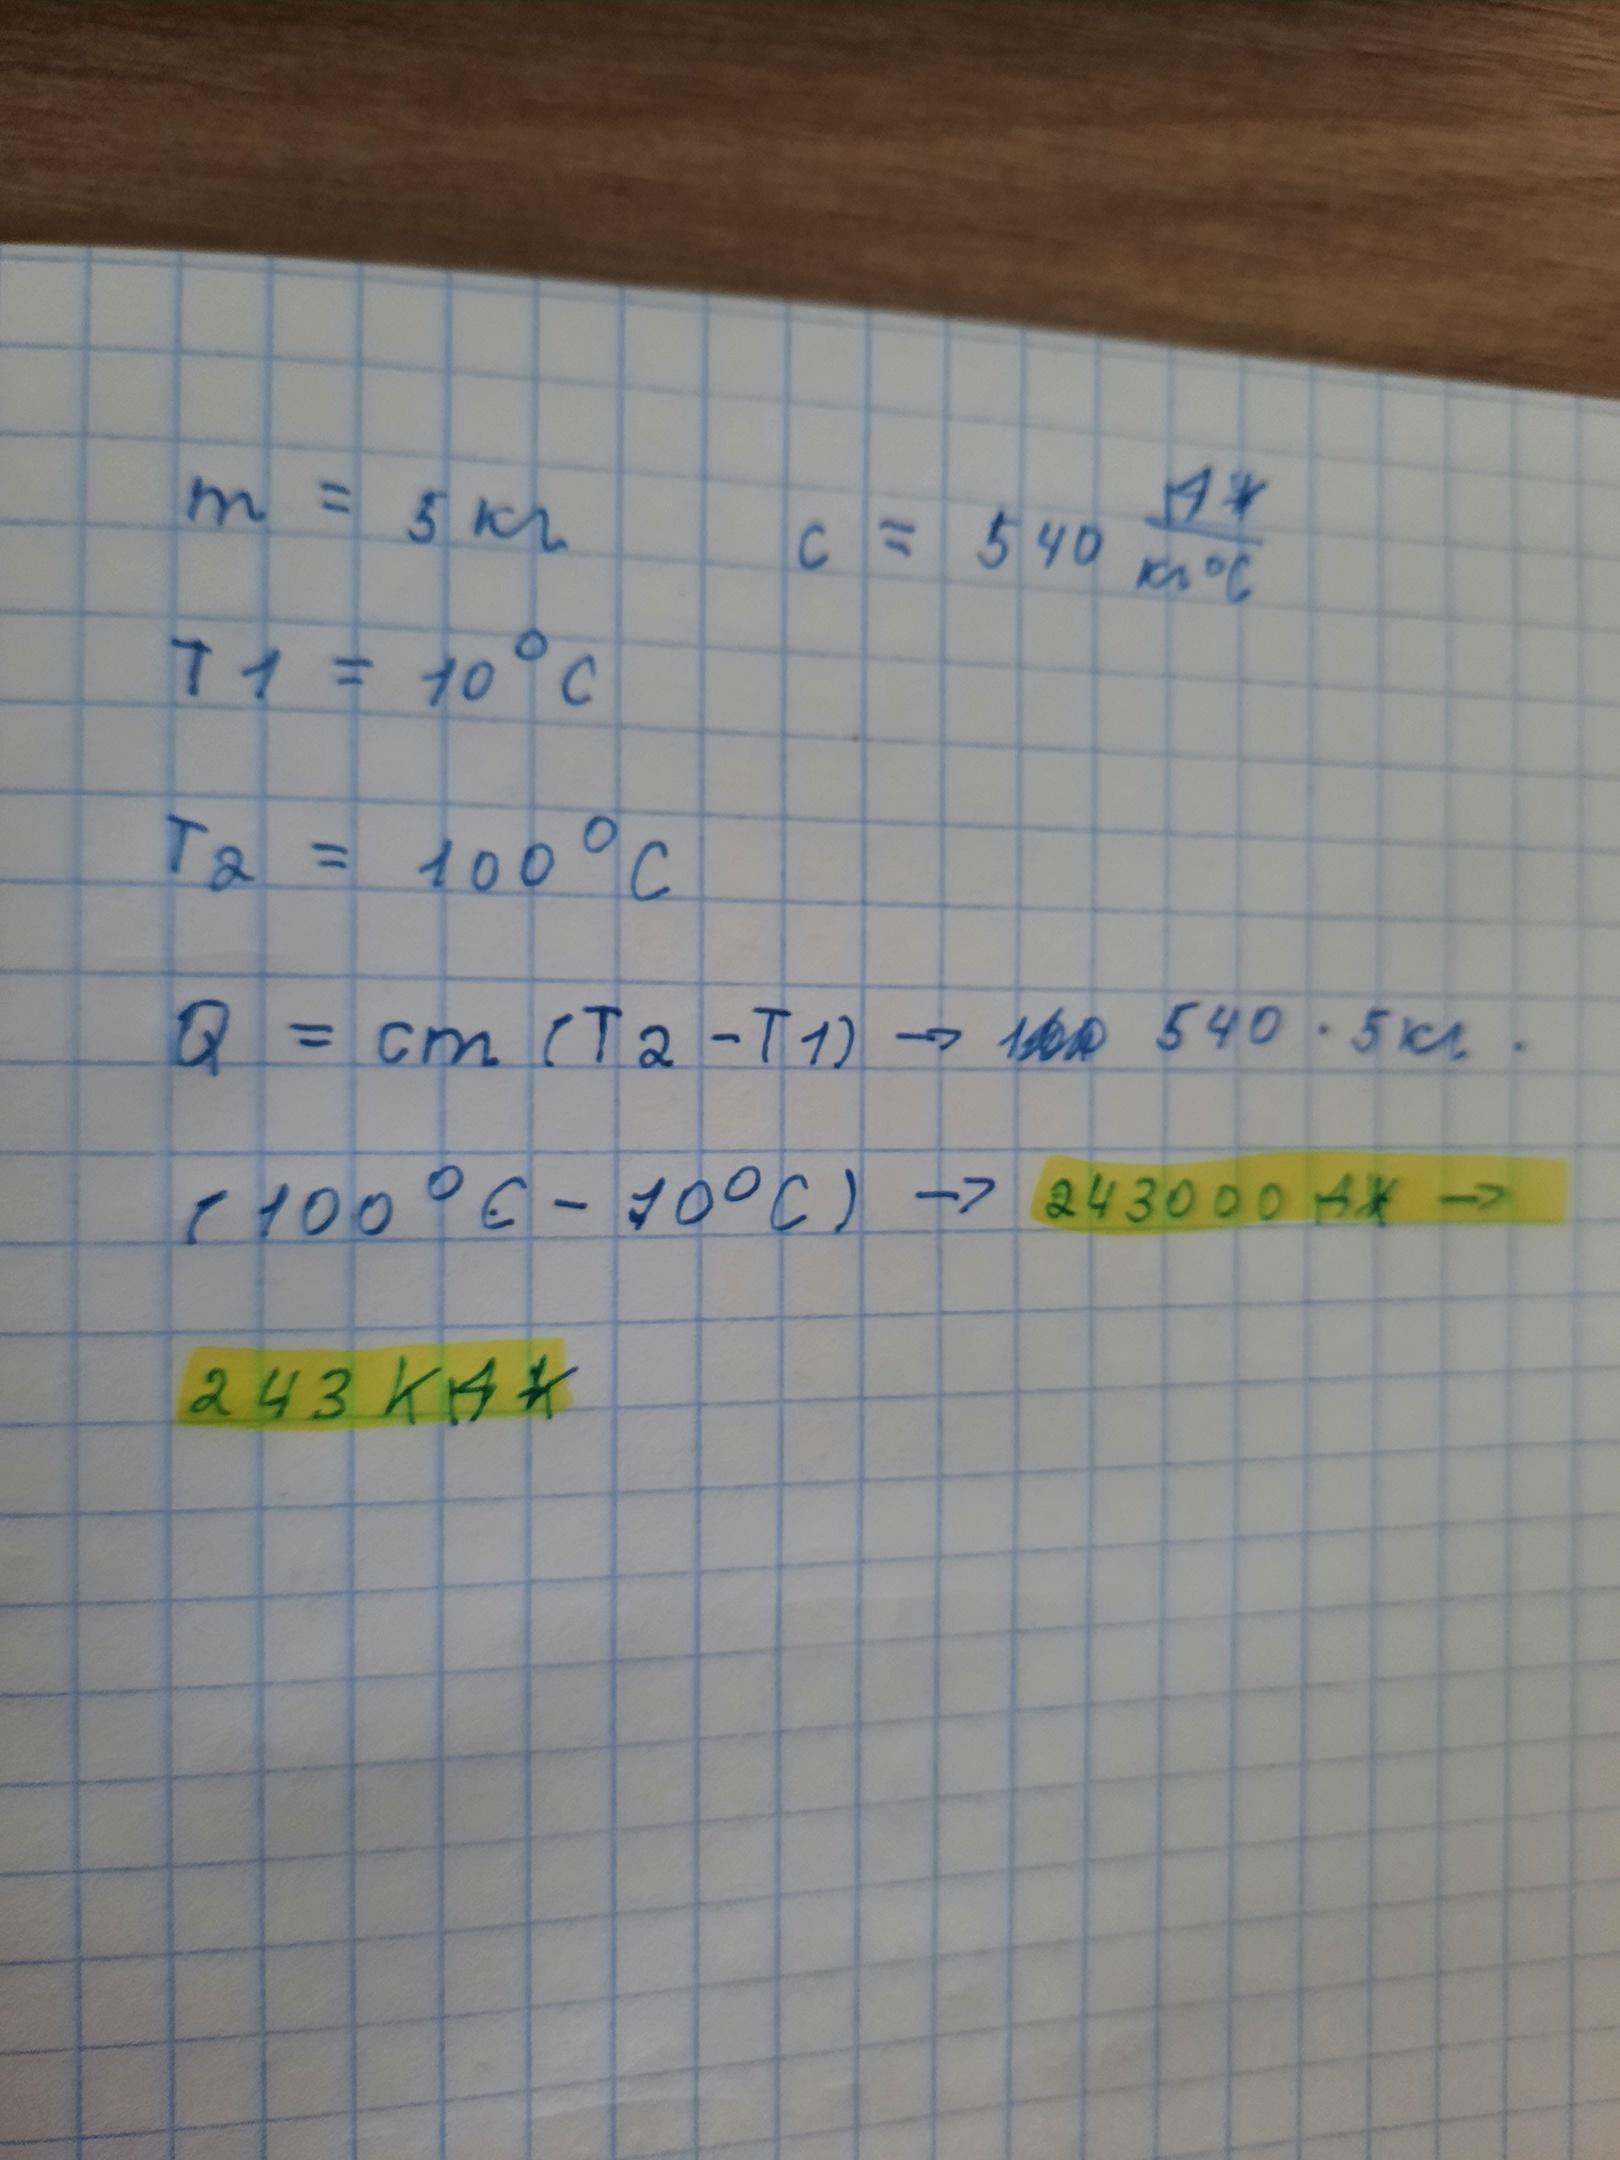 m = 5 кг c = 540 Дж/кг°C
T1 = 10°C
T2 = 100°C
Q = cm (T2 - T1) → 540 · 5кг ·
(100°C - 10°C) → 243000 Дж →
243 кДж